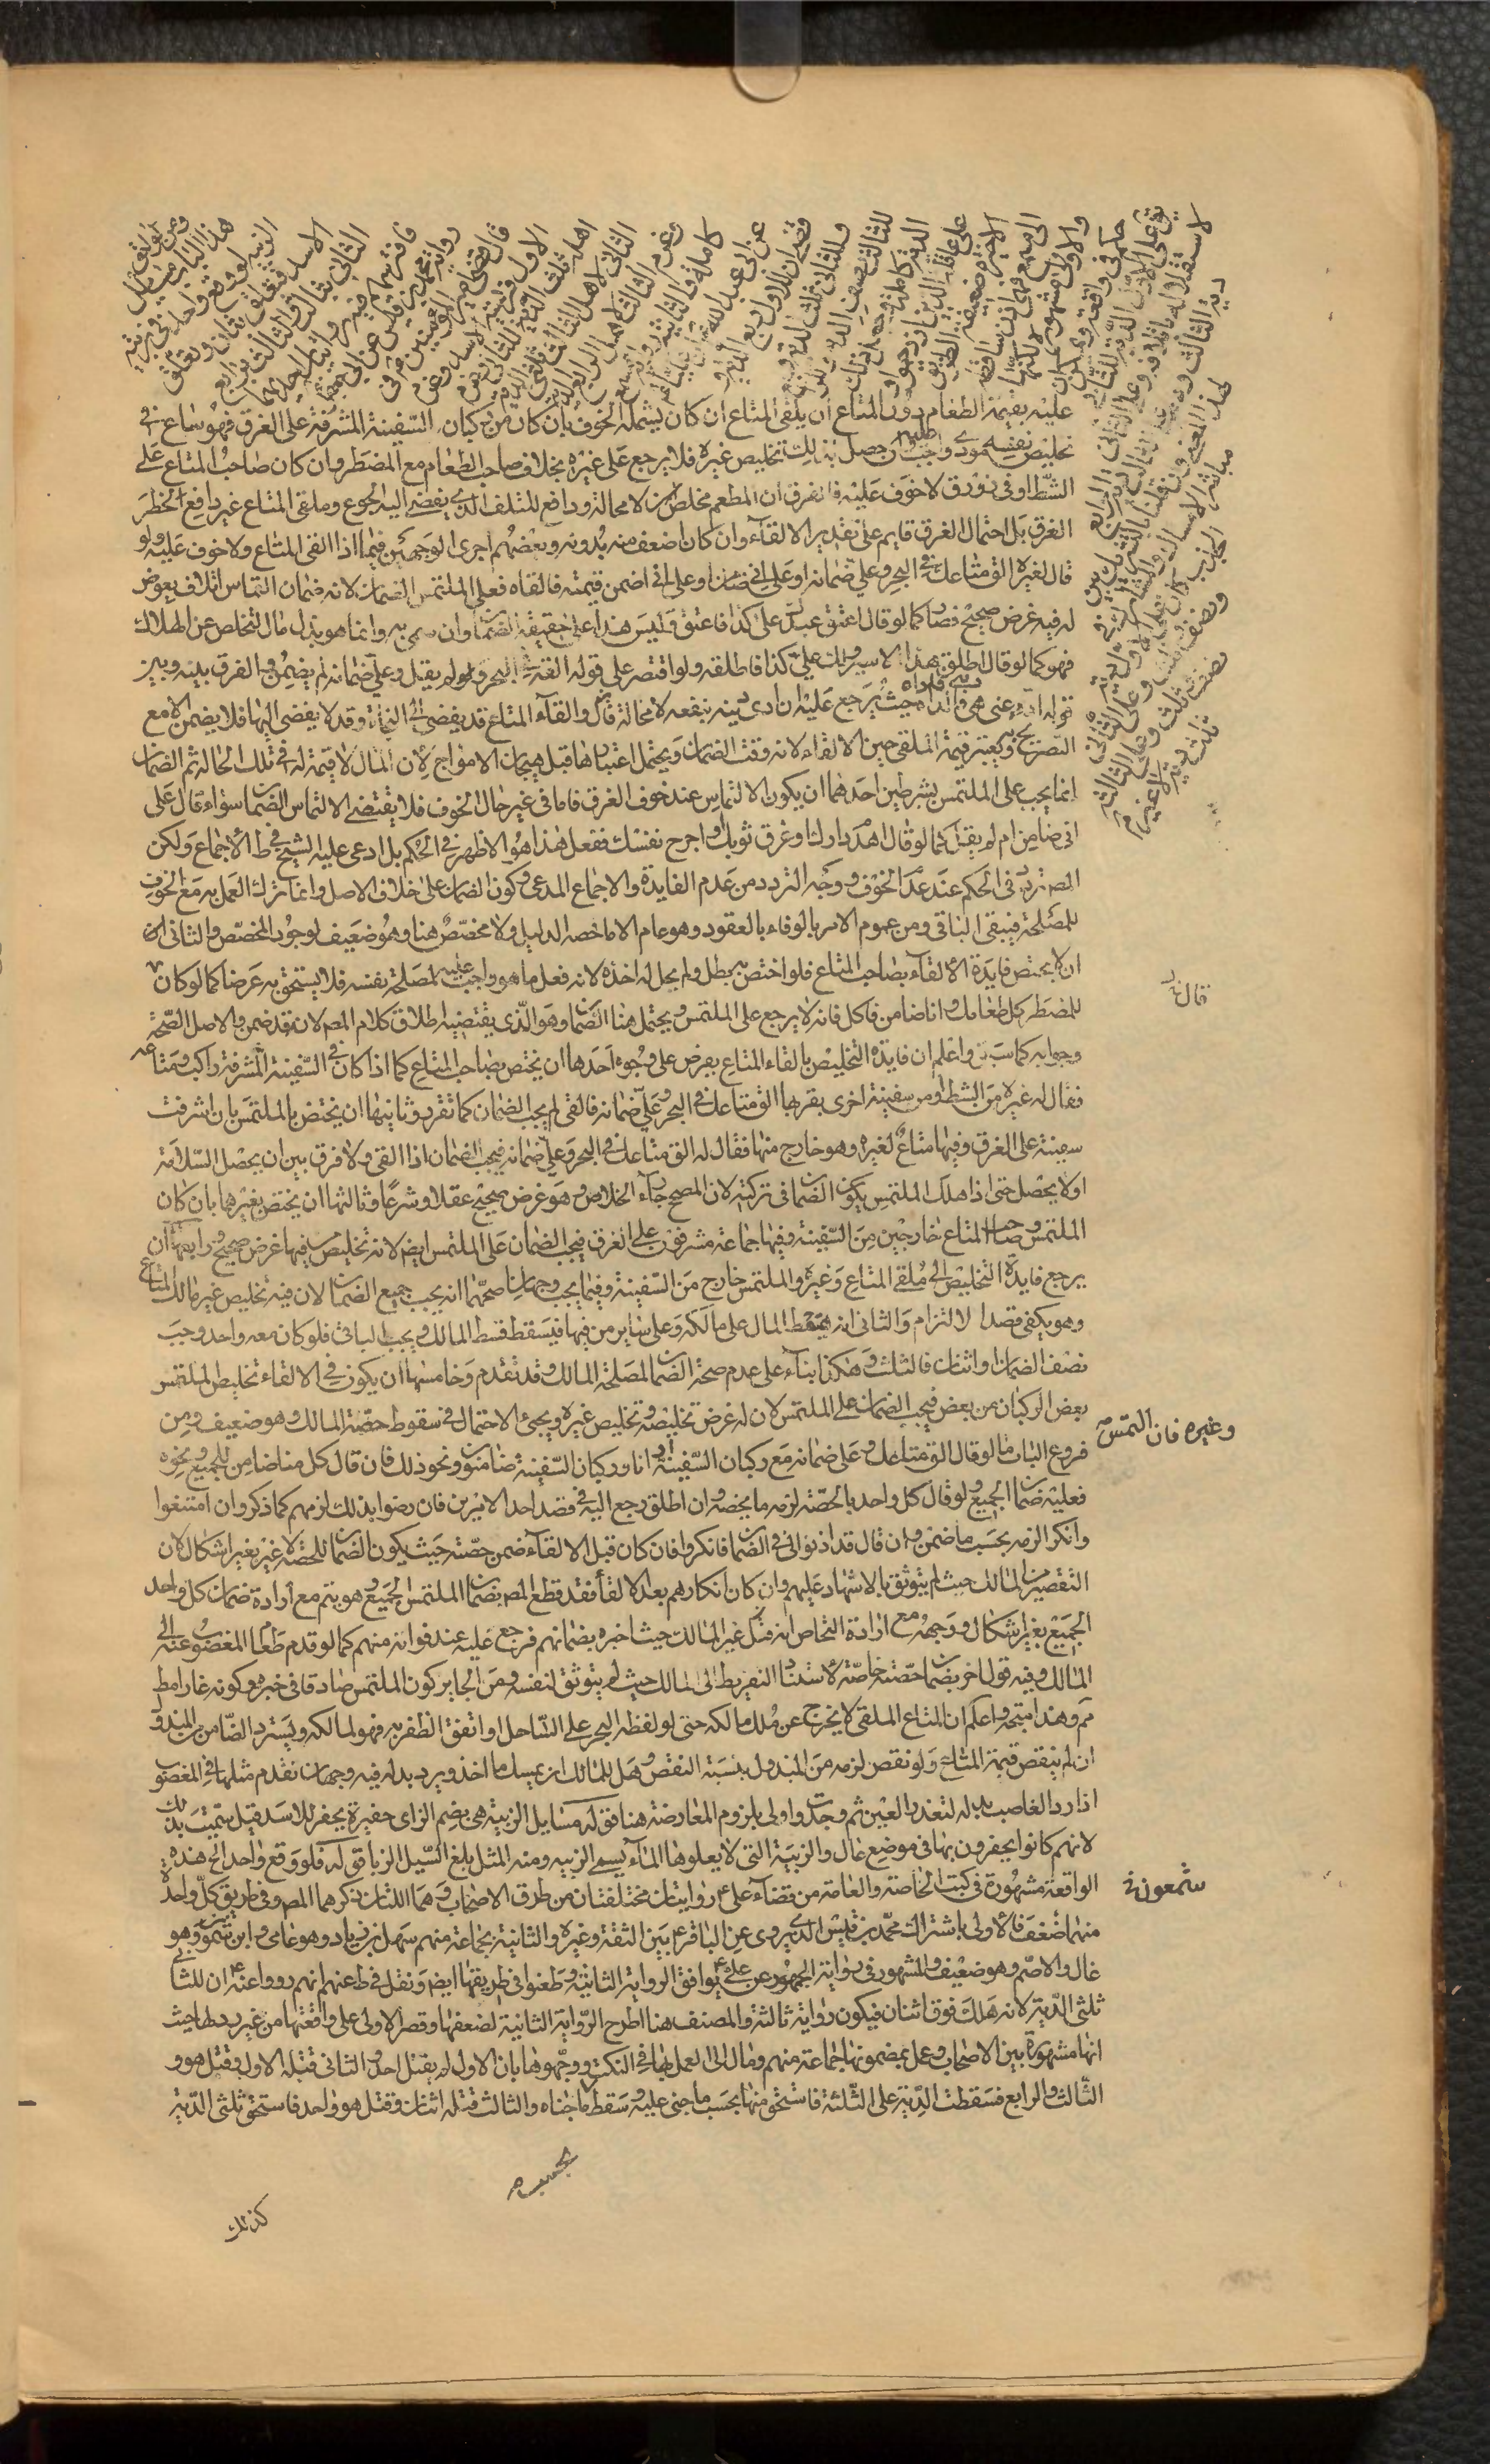 ومن لواحق
هذا الباب مسائل
الزبية لو وقع واحد في زبية
الاسد فتعلق بثان وتعلق
الثاني بثالث والثالث برابع
فافترسهم فيه روايتان احديهما
رواية محمد بن قيس عن ابي جعفر
قال قضى امير المؤمنين في
الاول فريسة الاسد وغرم
اهله ثلث الدية للثاني وغرم
الثاني لاهل الثالث ثلثي الدية
وغرم الثالث لاهل الرابع الدية
كاملة والثانية رواية مسمع
عن ابي عبد الله ان عليا
قضى ان للاول ربع الدية
وللثاني ثلث الدية
وللثالث نصف الدية وللرابع
الدية كاملة وجعل ذلك
على عاقلة الذين ازدحموا
والاخيرة ضعيفة الطريق
الى مسمع فهي اذن ساقطة
والاولى مشهورة لكنها
حكم في واقعة ويمكن ان
يق على الاول الدية للثاني
لاستقلاله باتلافه وعلى الثاني
دية الثالث وعلى الثالث دية الرابع
لهذا المعنى وان قلنا بالتشريك بين
مباشر الامساك والمشارك في
الجذب كان على الاول دية
ونصف وثلث وعلى الثاني
نصف وثلث وعلى الثالث
ثلث دية لا غير
عليه بقيمة الطعام دون المتاع ان يلقى المتاع ان كان يشمله الخوف بان كان من ركبان السفينة المشرفة على الغرق فهو ساع في
تخليص نفسه مود واجبا وان حصل بذلك تخليص غيره فلا يرجع على غيره بخلاف صاحب الطعام مع المضطر وان كان صاحب المتاع على
الشط او في زورق لا خوف عليه فالفرق ان المطعم مخلص لا محالة ودافع للتلف الذي يفضي اليه الجوع وملقى المتاع غير دافع لخطر
الغرق بل احتمال الغرق قايم على تقدير الالقاء وان كان اضعف منه بدونه وبعضهم اجرى الوجهين فيما اذا القى المتاع ولا خوف عليه ولو
قال لغيره الق متاعك في البحر وعلي ضمانه او على اني ضامن او على اني اضمن قيمته فالقاه فعلى الملتمس الضمان لانه ضمان التماس اتلاف بعوض
له فيه غرض صحيح فصار كما لو قال اعتق عبدك على كذا فاعتق وليس هذا على حقيقة الضمان وان سمي به وانما هو بذل مال للتخلص عن الهلاك
فهو كما لو قال اطلق هذا الاسير ولك علي كذا فاطلقه ولو اقتصر على قوله القه في البحر ولم يقل وعلي ضمانه لم يضمن والفرق بينه وبين
قوله اد عني ديني فاداه حيث يرجع عليه ان ادى دينه ينفعه لا محالة والقاء المتاع قد يفضي الى النجاة وقد لا يفضي اليها فلا يضمن الا مع
التصريح ويعتبر قيمة الملقى حين الالقاء لانه وقت الضمان ويحتمل اعتبارها قبل هيجان الامواج لان المال لا قيمة له في تلك الحالة ثم الضمان
انما يجب على الملتمس بشرطين احدهما ان يكون الالتماس عند خوف الغرق فاما في غير حال الخوف فلا يقتضي الالتماس الضمان سواء قال على
اني ضامن ام لم يقل كما لو قال اهدم دارك او غرق ثوبك او اجرح نفسك ففعل هذا هو الاظهر في الحكم بل ادعى عليه الشيخ في ط الاجماع ولكن
المصنف تردد في الحكم عند عدم الخوف ووجه التردد من عدم الفايدة والاجماع المدعى وكون الضمان على خلاف الاصل وانما ترك العمل به مع الخوف
للمصلحة فيبقى الباقي ومن عموم الامر بالوفاء بالعقود وهو عام الا ما خصه الدليل ولا مخصص هنا وهو ضعيف لوجود المخصص والثاني
ان لا يختص فايدة الالقاء بصاحب المتاع فلو اختص به بطل ولم يحل له اخذه لانه فعل ما هو واجب عليه لمصلحة نفسه فلا يستحق به عوضا كما لو كان
للمضطر كل طعامك وانا ضامن فاكل فانه لا يرجع على الملتمس ويحتمل هنا الضمان وهو الذي يقتضيه اطلاق كلام المصنف لانه قد ضمن والاصل الصحة
وجوابه كما سبق واعلم ان فايدة التخليص بالقاء المتاع يفرض على وجوه احدها ان يختص بصاحب المتاع كما اذا كان في السفينة المشرفة راكب ومتاعه
فقال له غيره من الشط او من سفينة اخرى بقربها الق متاعك في البحر وعلي ضمانه فالقى لم يجب الضمان كما تقرر وثانيها ان يختص بالملتمس بان اشرفت
سفينة على الغرق وفيها متاع لغيره وهو خارج منها فقال له الق متاعك في البحر وعلي ضمانه فيجب الضمان اذا القى ولا فرق بين ان يحصل السلامة
او لا يحصل حتى اذا هلك الملتمس يكون الضمان في تركته لان المصحح رجاء الخلاص وهو غرض صحيح عقلا وشرعا وثالثها ان يختص بغيرهما بان كان
الملتمس وصاحب المتاع خارجين من السفينة وفيها جماعة مشرفون على الغرق فيجب الضمان على الملتمس ايضا لانه تخليص فيها غرض صحيح ورابعها ان
يرجع فايدة التخليص الى ملقى المتاع وغيره والملتمس خارج من السفينة وفيما يجب وجهان اصحهما انه يجب جميع الضمان لان فيه تخليص غير مالك المتاع
وهو يكفي قصدا لالتزام والثاني انه يقسط المال على مالكه وعلى ساير من فيها فيسقط قسط المالك ويجب الباقي فلو كان معه واحد وجب
نصف الضمان او اثنان فالثلث وهكذا بناء على عدم صحة الضمان لمصلحة المالك وقد تقدم وخامسها ان يكون في الالقاء تخليص الملتمس
بعض الركبان من بعض فيجب الضمان على الملتمس لان له غرض تخليصه وتخليص غيره ويجيء الاحتمال في سقوط حصة المالك وهو ضعيف ومن
فروع الباب ما لو قال الق متاعك وعلي ضمانه مع ركبان السفينة او انا وركبان السفينة ضامنون ونحو ذلك فان قال كل منا ضامن للجميع ونحوه
فعليه ضمان الجميع ولو قال كل واحد بالحصة لزمه ما يخصه وان اطلق رجع اليه في قصد احد الامرين فان رضوا بذلك لزمهم كما ذكر وان امتنعوا
وانكر الزمه بحسب ما ضمن وان قال قد اذنوا لي في الضمان فانكروا فان كان قبل الالقاء ضمن حصته حيث يكون الضمان للحصة لا غير بغير اشكال لان
التقصير من المالك حيث لم يتوثق بالاشهاد عليهم وان كان انكارهم بعد الالقاء فقد قطع المصنف بضمان الملتمس الجميع وهو يتم مع ارادة ضمان كل واحد
الجميع بغير اشكال ووجهه مع ارادة التحاص انه غير المالك حيث اخبره بضمانهم فرجع عليه عند فواته منهم كما لو قدم طعام المغصوب عنه الى
المالك وفيه قول اخر بضمان حصته خاصة لاستناد التفريط الى المالك حيث لم يتوثق لنفسه ومن الجايز كون الملتمس صادقا في خبره وكونه غارا مط
مم وهذا متجه واعلم ان المتاع الملقى لا يخرج عن ملك مالكه حتى لو لفظه البحر على الساحل او اتفق الظفر به فهو لمالكه ويسترد الضامن المبذول
ان لم ينقص قيمة المتاع ولو نقص لزمه من المبذول بنسبة النقص وهل للمالك ان يمسك ما اخذ ويرد بدله فيه وجهان تقدم مثلها في المغصوب
اذا رد الغاصب بدله لتعذر العين ثم وجدت واولى بلزوم المعارضة هنا قوله مسايل الزبية هي بضم الزاي حفيرة يحفر للاسد قيل سميت بذلك
لانهم كانوا يحفرون بها في موضع عال والزبية التي لا يعلوها الماء يسمى الزبيه ومنه المثل بلغ السيل الزبا قوله فلو وقع واحد الخ هذه
الواقعة مشهورة في كتب الخاصة والعامة من قضاء علي ع روايتان مختلفتان من طرق الاصحاب وهما اللتان ذكرهما المصنف وفي طريق كل واحدة
منهما ضعف فالاولى باشتراك محمد بن قيس الذي يروي عن الباقر ع بين الثقة وغيره والثانية بجماعة منهم سهل بن زياد وهو عامي وابن شمون وهو
غال والاصم وهو ضعيف والمشهور في رواية الجمهور عن علي ع يوافق الرواية الثانية وطعنوا في طريقها ايضا ونقل في ط عنهم انهم رووا عنه ان للثالث
ثلثي الدية لانه هلك فوق اثنان فيكون رواية ثالثة والمصنف هنا اطرح الرواية الثانية لضعفها وقصر الاولى على واقعتها من غير ردها حيث
انها مشهورة بين الاصحاب وعمل بمضمونها جماعة منهم ومال الى العمل بها في النكت ووجهوها بان الاول لم يقتل احدا والثاني قتله الاول وقتل هو
الثالث والرابع فسقطت الدية على الثلثة فاستحق منها بحسب ما جنى عليه وسقط ما جناه والثالث قتله اثنان وقتل هو واحد فاستحق ثلثي الدية
قال
وغيره فان التمس
شمعون
كذلك